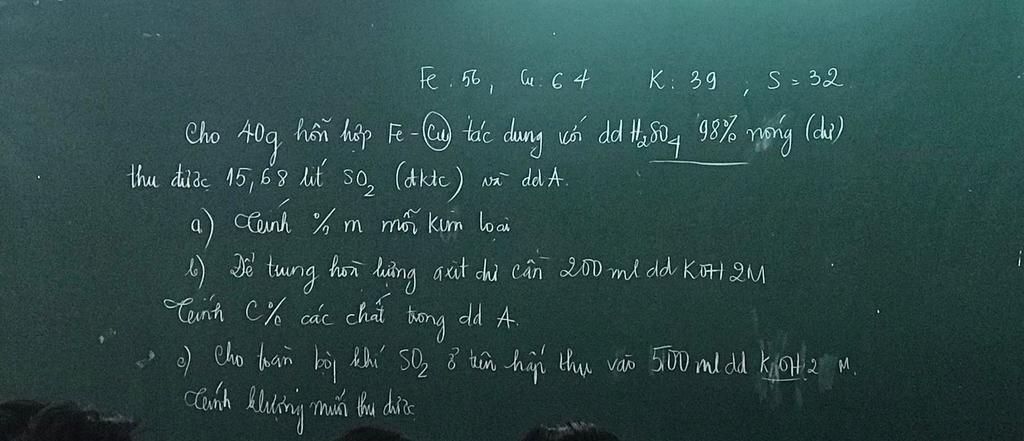 Fe : 56, Cu : 64 K : 39, S = 32
Cho 40g hỗn hợp Fe - Cu tác dụng với dd H₂SO₄ 98% nóng (dư)
thu được 15,68 lít SO₂ (đktc) và dd A.
a) Tính % m mỗi kim loại
b) Để trung hoà lượng axit dư cần 200 ml dd KOH 2M
Tính C% các chất trong dd A.
c) Cho toàn bộ khí SO₂ ở trên hấp thu vào 500 ml dd KOH 2 M.
Tính khlượng muối thu được